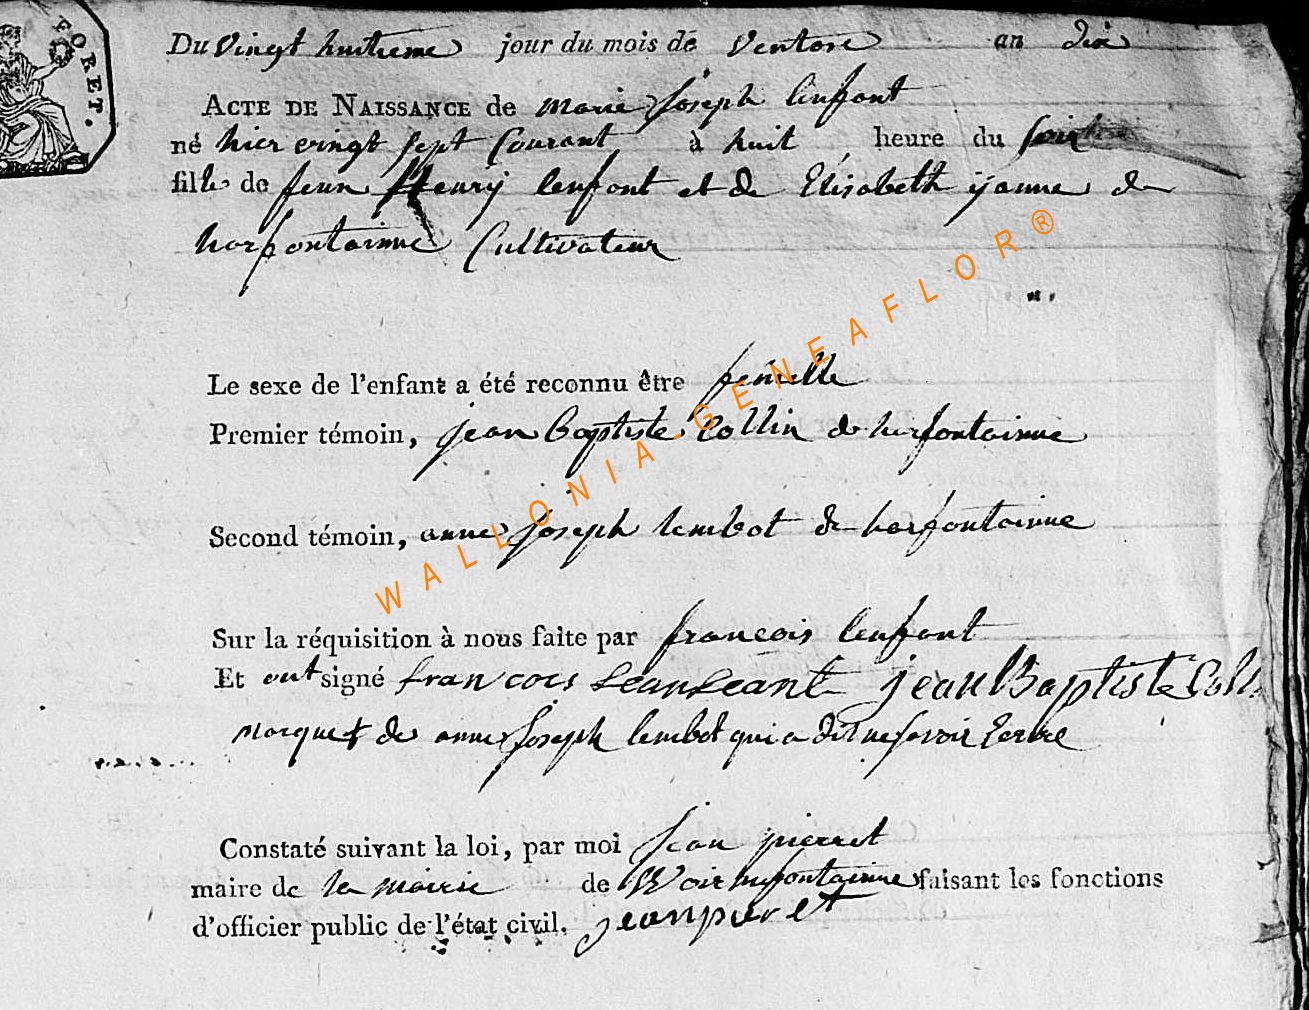 FORET.
Du vingt huitieme jour du mois de Ventose an dix
ACTE DE NAISSANCE de marie joseph lenfant
né hier vingt sept Courant à huit heure du soir
fille de jean Henry lenfant et de Elisabeth ijanne de
harfontainne Cultivateur
Le sexe de l'enfant a été reconnu être femelle
Premier témoin, jean Baptiste Collin de harfontainne
Second témoin, anne joseph lambot de harfontainne
Sur la réquisition à nous faite par francois lenfant
Et ont signé francois jean Baptiste
marque + de anne joseph lambot qui a dit ne savoir
Constaté suivant la loi, par moi jean pierret
maire de la mairie de faisant les fonctions
d'officier public de l'état civil. jean pierret
WALLONIA.GENEAFLOR®